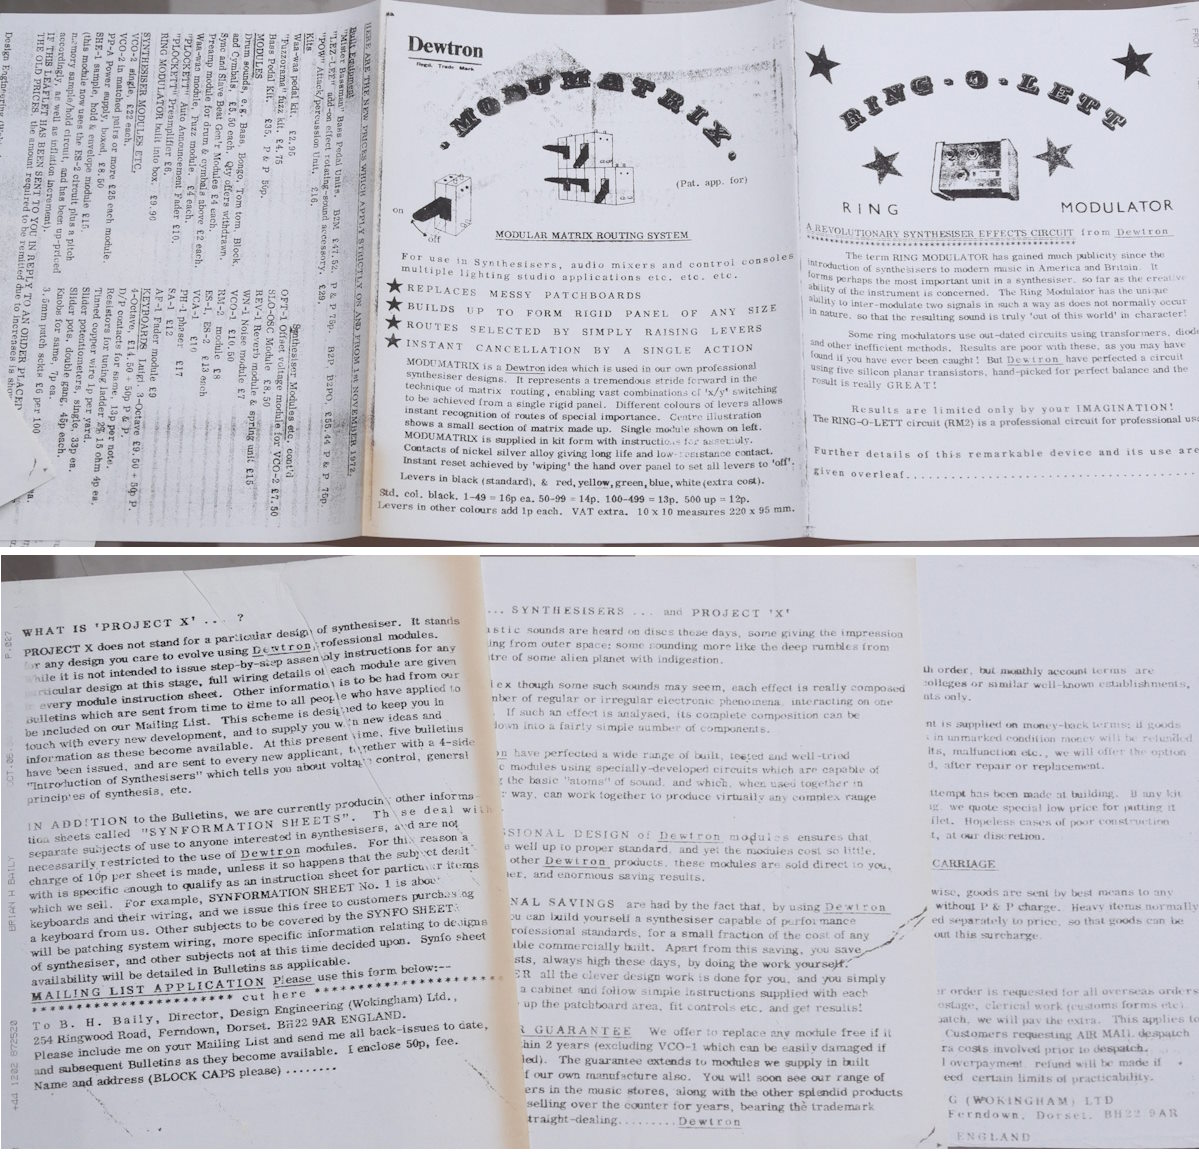 HERE ARE THE NEW PRICES WHICH APPLY STRICTLY ON AND FROM 1st NOVEMBER 1972.
Built Equipment
"Mister Bassman" Bass Pedal Units. B2M £47.52. P & P 75p. B2P, B2PO, £55.44 P & P 75p.
"LEZ-LEE" add-on effect rotating-sound accessory. £29.
"POW" Attack/percussion Unit, £16.
Kits.
Waa-waa pedal kit. £2.95
"Fuzzorama" fuzz kit. £4.75
Bass Pedal Kit. £35. P & P 50p.
MODULES
Drum sounds, e.g. Bass, Bongo, Tom tom, Block,
and Cymbals, £5.50 each. Qty offers withdrawn.
Sync and Slave Beat Gen'r Modules £4 each.
Preamp module for drum & cymbals above £2 each.
Waa-waa module, Fuzz module. £4 each.
"PLOCKETT" Auto Announcement Fader £10.
"PLOCKETT" Preamplifier £6.
RING MODULATOR built into box. £9.90
SYNTHESISER MODULES ETC.
VCO-2 single, £22 each.
VCO-2 in matched pairs or more £25 each module.
PP-A Power supply, boxed, £8.50
SHE-1 sample, hold & envelope module £15.
(this module now uses the ES-2 circuit plus a pitch
memory sample/hold circuit, and has been up-priced
accordingly, as well as inflation increment).
Synthesiser Modules etc. cont'd
OFT-1 Offset voltage module for VCO-2 £7.50
SLO-OSC Module £8.50
REV-1 Reverb module & spring unit £15
WN-1 Noise module £7
VCO-1 £10.50
RM-2 module £8
ES-1, ES-2 £13 each
VCA-1 £10
PH-1 Phaser £17
SA-1 £12
AF-1 Fader module £9
KEYBOARDS Luigi 3-Octave £9.50 + 50p P.
4-Octave, £14.50 + 50p P & P.
D/P contacts for same, 13p per note.
Resistors for tuning ladder 15 ohm 4p ea.
Tinned copper wire 1p per yard.
Slider potentiometers, single, 33p ea.
Slider pots, double gang, 46p each.
Knobs for same, 7p ea.
3.5mm patch sockts £6 per 100
IF THIS LEAFLET HAS BEEN SENT TO YOU IN REPLY TO AN ORDER PLACED
THE OLD PRICES, the amount required to be remitted due to increases is
Design Engineering
Dewtron
Regd. Trade Mark
. MODUMATRIX .
(Pat. app. for)
on
off
MODULAR MATRIX ROUTING SYSTEM
For use in Synthesisers, audio mixers and control consoles
multiple lighting studio applications etc. etc. etc.
★ REPLACES MESSY PATCHBOARDS
★ BUILDS UP TO FORM RIGID PANEL OF ANY SIZE
★ ROUTES SELECTED BY SIMPLY RAISING LEVERS
★ INSTANT CANCELLATION BY A SINGLE ACTION
MODUMATRIX is a Dewtron idea which is used in our own professional
synthesiser designs. It represents a tremendous stride forward in the
technique of matrix routing, enabling vast combinations of 'x/y' switching
to be achieved from a single rigid panel. Different colours of levers allows
instant recognition of routes of special importance. Centre illustration
shows a small section of matrix made up. Single module shown on left.
MODUMATRIX is supplied in kit form with instructions for assembly.
Contacts of nickel silver alloy giving long life and low-resistance contact.
Instant reset achieved by 'wiping' the hand over panel to set all levers to 'off'.
Levers in black (standard), & red, yellow, green, blue, white (extra cost).
Std. col. black. 1-49 = 16p ea. 50-99 = 14p. 100-499 = 13p. 500 up = 12p.
Levers in other colours add 1p each. VAT extra. 10 x 10 measures 220 x 95 mm.
RING-O-LETT
RING MODULATOR
A REVOLUTIONARY SYNTHESISER EFFECTS CIRCUIT from Dewtron
The term RING MODULATOR has gained much publicity since the
introduction of synthesisers to modern music in America and Britain. It
forms perhaps the most important unit in a synthesiser, so far as the creative
ability of the instrument is concerned. The Ring Modulator has the unique
ability to inter-modulate two signals in such a way as does not normally occur
in nature, so that the resulting sound is truly 'out of this world' in character!
Some ring modulators use out-dated circuits using transformers, diode
and other inefficient methods. Results are poor with these, as you may have
found if you have ever been caught! But Dewtron have perfected a circuit
using five silicon planar transistors, hand-picked for perfect balance and the
result is really GREAT!
Results are limited only by your IMAGINATION!
The RING-O-LETT circuit (RM2) is a professional circuit for professional us
Further details of this remarkable device and its use are
given overleaf..............................
WHAT IS 'PROJECT X' ... ?
PROJECT X does not stand for a particular design of synthesiser. It stands
for any design you care to evolve using Dewtron professional modules.
While it is not intended to issue step-by-step assembly instructions for any
particular design at this stage, full wiring details of each module are given
every module instruction sheet. Other information is to be had from our
Bulletins which are sent from time to time to all people who have applied to
be included on our Mailing List. This scheme is designed to keep you in
touch with every new development, and to supply you with new ideas and
information as these become available. At this present time, five bulletins
have been issued, and are sent to every new applicant, together with a 4-side
"Introduction of Synthesisers" which tells you about voltage control, general
principles of synthesis, etc.
IN ADDITION to the Bulletins, we are currently producing other informa-
tion sheets called "SYNFORMATION SHEETS". These deal with
separate subjects of use to anyone interested in synthesisers, and are not
necessarily restricted to the use of Dewtron modules. For this reason a
charge of 10p per sheet is made, unless it so happens that the subject dealt
with is specific enough to qualify as an instruction sheet for particular items
which we sell. For example, SYNFORMATION SHEET No. 1 is about
keyboards and their wiring, and we issue this free to customers purchasing
a keyboard from us. Other subjects to be covered by the SYNFO SHEETS
will be patching system wiring, more specific information relating to designs
of synthesiser, and other subjects not at this time decided upon. Synfo sheet
availability will be detailed in Bulletins as applicable.
MAILING LIST APPLICATION Please use this form below:--
*********************** cut here ***********************
To B. H. Baily, Director, Design Engineering (Wokingham) Ltd.,
254 Ringwood Road, Ferndown, Dorset. BH22 9AR ENGLAND.
Please include me on your Mailing List and send me all back-issues to date,
and subsequent Bulletins as they become available. I enclose 50p, fee.
Name and address (BLOCK CAPS please) ........
BRIAN H BAILY
+44 1202 873520
... SYNTHESISERS ... and PROJECT 'X'
astic sounds are heard on discs these days, some giving the impression
ing from outer space; some sounding more like the deep rumbles from
tre of some alien planet with indigestion.
lex though some such sounds may seem, each effect is really composed
mber of regular or irregular electronic phenomena, interacting on one
If such an effect is analysed, its complete composition can be
own into a fairly simple number of components.
n have perfected a wide range of built, tested and well-tried
c modules using specially-developed circuits which are capable of
g the basic "atoms" of sound, and which, when used together in
r way, can work together to produce virtually any complex range
SIONAL DESIGN of Dewtron modules ensures that
e well up to proper standard, and yet the modules cost so little.
other Dewtron products, these modules are sold direct to you,
er, and enormous saving results.
NAL SAVINGS are had by the fact that, by using Dewtron
ou can build yourself a synthesiser capable of performance
rofessional standards, for a small fraction of the cost of any
ble commercially built. Apart from this saving, you save
sts, always high these days, by doing the work yourself.
ER all the clever design work is done for you, and you simply
a cabinet and follow simple instructions supplied with each
up the patchboard area, fit controls etc. and get results!
R GUARANTEE We offer to replace any module free if it
hin 2 years (excluding VCO-1 which can be easily damaged if
led). The guarantee extends to modules we supply in built
f our own manufacture also. You will soon see our range of
ers in the music stores, along with the other splendid products
selling over the counter for years, bearing the trademark
traight-dealing.........Dewtron
th order, but monthly account terms are
colleges or similar well-known establishments,
nts only.
nt is supplied on money-back terms; if goods
in unmarked condition money will be refunded
its, malfunction etc., we will offer the option
d, after repair or replacement.
ttempt has been made at building. If any kit
ig, we quote special low price for putting it
flet. Hopeless cases of poor construction
t, at our discretion.
CARRIAGE
wise, goods are sent by best means to any
without P & P charge. Heavy items normally
ed separately to price, so that goods can be
out this surcharge.
r order is requested for all overseas orders
ostage, clerical work (customs forms etc).
atch, we will pay the extra. This applies to
Customers requesting AIR MAIL despatch
ra costs involved prior to despatch.
l overpayment, refund will be made if
eed certain limits of practicability.
G (WOKINGHAM) LTD
Ferndown, Dorset. BH22 9AR
ENGLAND